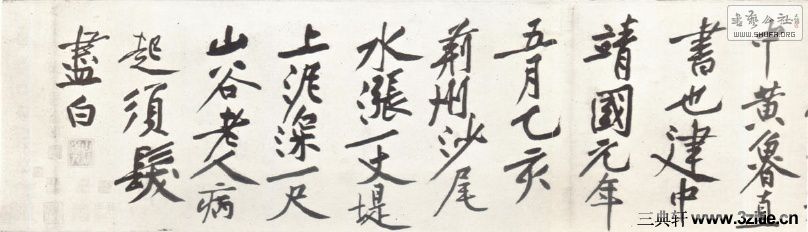 中黄魯直
書也建中
靖國元年
五月乙亥
荊州沙尾
水漲一丈堤
上泥深一尺
山谷老人病
起須髮
盡白
書藝公社
WWW.SHUFA.ORG
三典轩 www.3zitie.cn